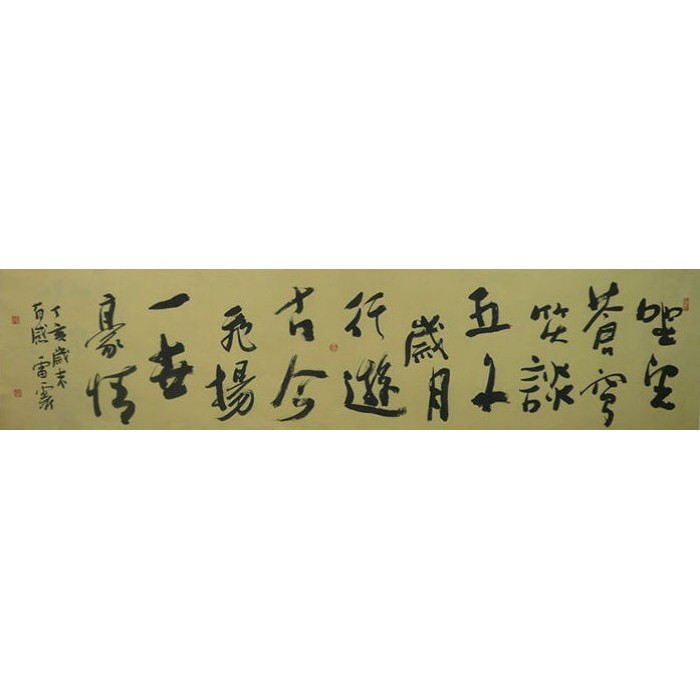 蒼穹
笑談
五千
歲月
行遊
古今
飛揚
一世
豪情
丁亥歲末
有感 雷